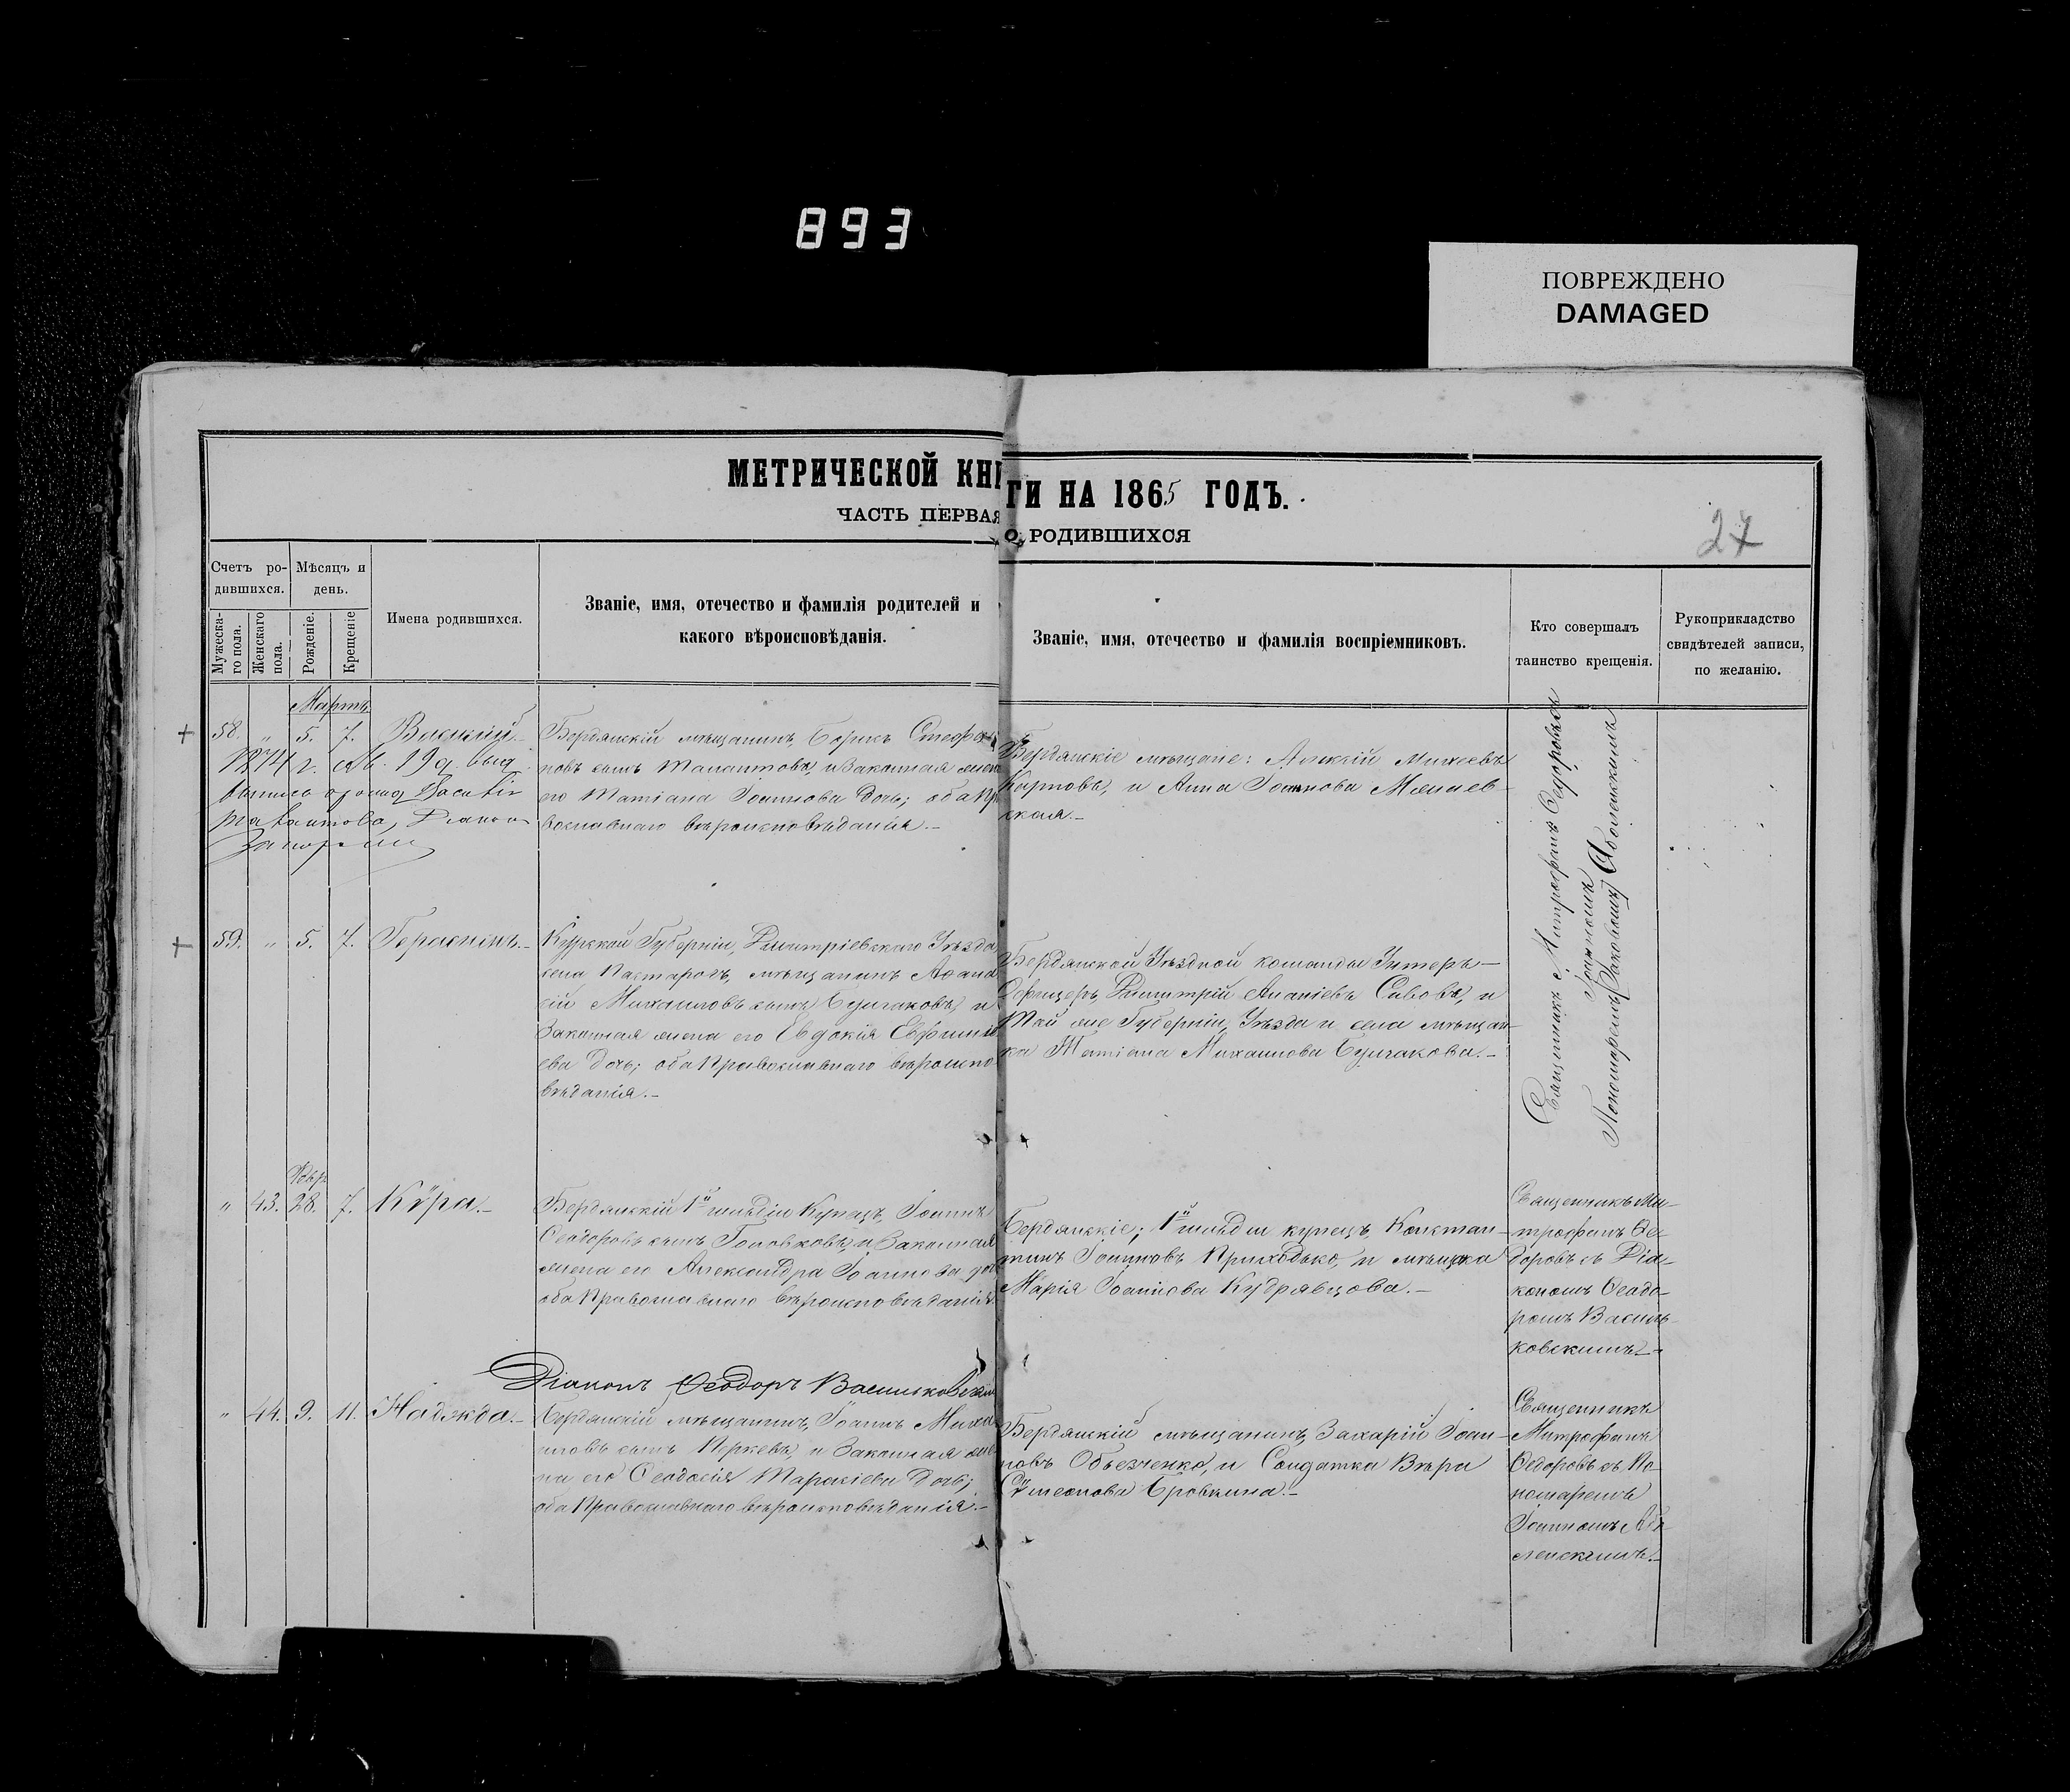 893
ПОВРЕЖДЕНО
DAMAGED
МЕТРИЧЕСКОЙ КНИ
ГИ НА 1865 ГОДЪ.
ЧАСТЬ ПЕРВАЯ
О РОДИВШИХСЯ
27
Счетъ ро-
дившихся.
Мужеска-
го пола.
Женскаго
пола.
Мѣсяцъ и
день.
Рожденіе.
Крещеніе
Имена родившихся.
Званіе, имя, отечество и фамилія родителей и
какого вѣроисповѣданія.
Званіе, имя, отечество и фамилія воспріемниковъ.
Кто совершалъ
таинство крещенія.
Рукоприкладство
свидѣтелей записи,
по желанію.
Мартъ
58. " 5. 7. Василій.-
1874 г.
Бердянскій мѣщанинъ, Борисъ Стефа
новъ сынъ Талантовъ, и Законная жена
его Татіана Іоаннова дочь; оба Пра
вославнаго вѣроисповѣданія.-
Бердянскіе мѣщане: Алексій Михеевъ
Карповъ, и Анна Іоаннова
ская.-
Священникъ Митрофанъ Ѳедоровъ съ
Пономаремъ Іоанномъ
59. " 5. 7. Герасимъ.-
Курской Губерніи, Дмитріевскаго Уѣзда
села мѣщанинъ Аѳана
сій Михаиловъ сынъ Булгаковъ, и
Законная жена его Евдокія Евфимі
ева дочь; оба Православнаго вѣроиспо
вѣданія.-
Бердянской Уѣздной команды Унтеръ-
Офицеръ, Димитрій Ананіевъ Сивовъ, и
Той же Губерніи, Уѣзда и села мѣщан-
ка Татіана Михаилова Булгакова.-
Февр
" 43. 28. 7. Кѵра.-
Бердянскій 1й гильдіи Купецъ, Іоаннъ
Ѳеодоровъ сынъ Головковъ, и Законная
жена его Александра Іоаннова доч
оба Православнаго вѣроисповѣданія.
Бердянскіе; 1й гильдіи купецъ, Констан-
тинъ Іоанновъ Приходько, и мѣщанка
Марія Іоаннова Кудрявцова.-
Священникъ Ми-
трофанъ Ѳе-
доровъ съ Діа-
кономъ Ѳеодо-
ромъ Василь-
ковскимъ.-
Діаконъ Ѳеодоръ Васильковскій
" 44. 9. 11. Надежда.-
Бердянскій мѣщанинъ, Іоаннъ Миха
иловъ сынъ Перкевъ, и Законная же
на его Ѳеодосія Тарасіева дочь;
оба Православнаго вѣроисповѣданія.-
Бердянскій мѣщанинъ, Захарій Іоан-
новъ Объезченко, и Солдатка Вѣра
Сѵмеонова Бровкина.-
Священникъ
Митрофанъ
Ѳедоровъ съ По-
номаремъ
Іоанномъ Або-
ленскимъ.-